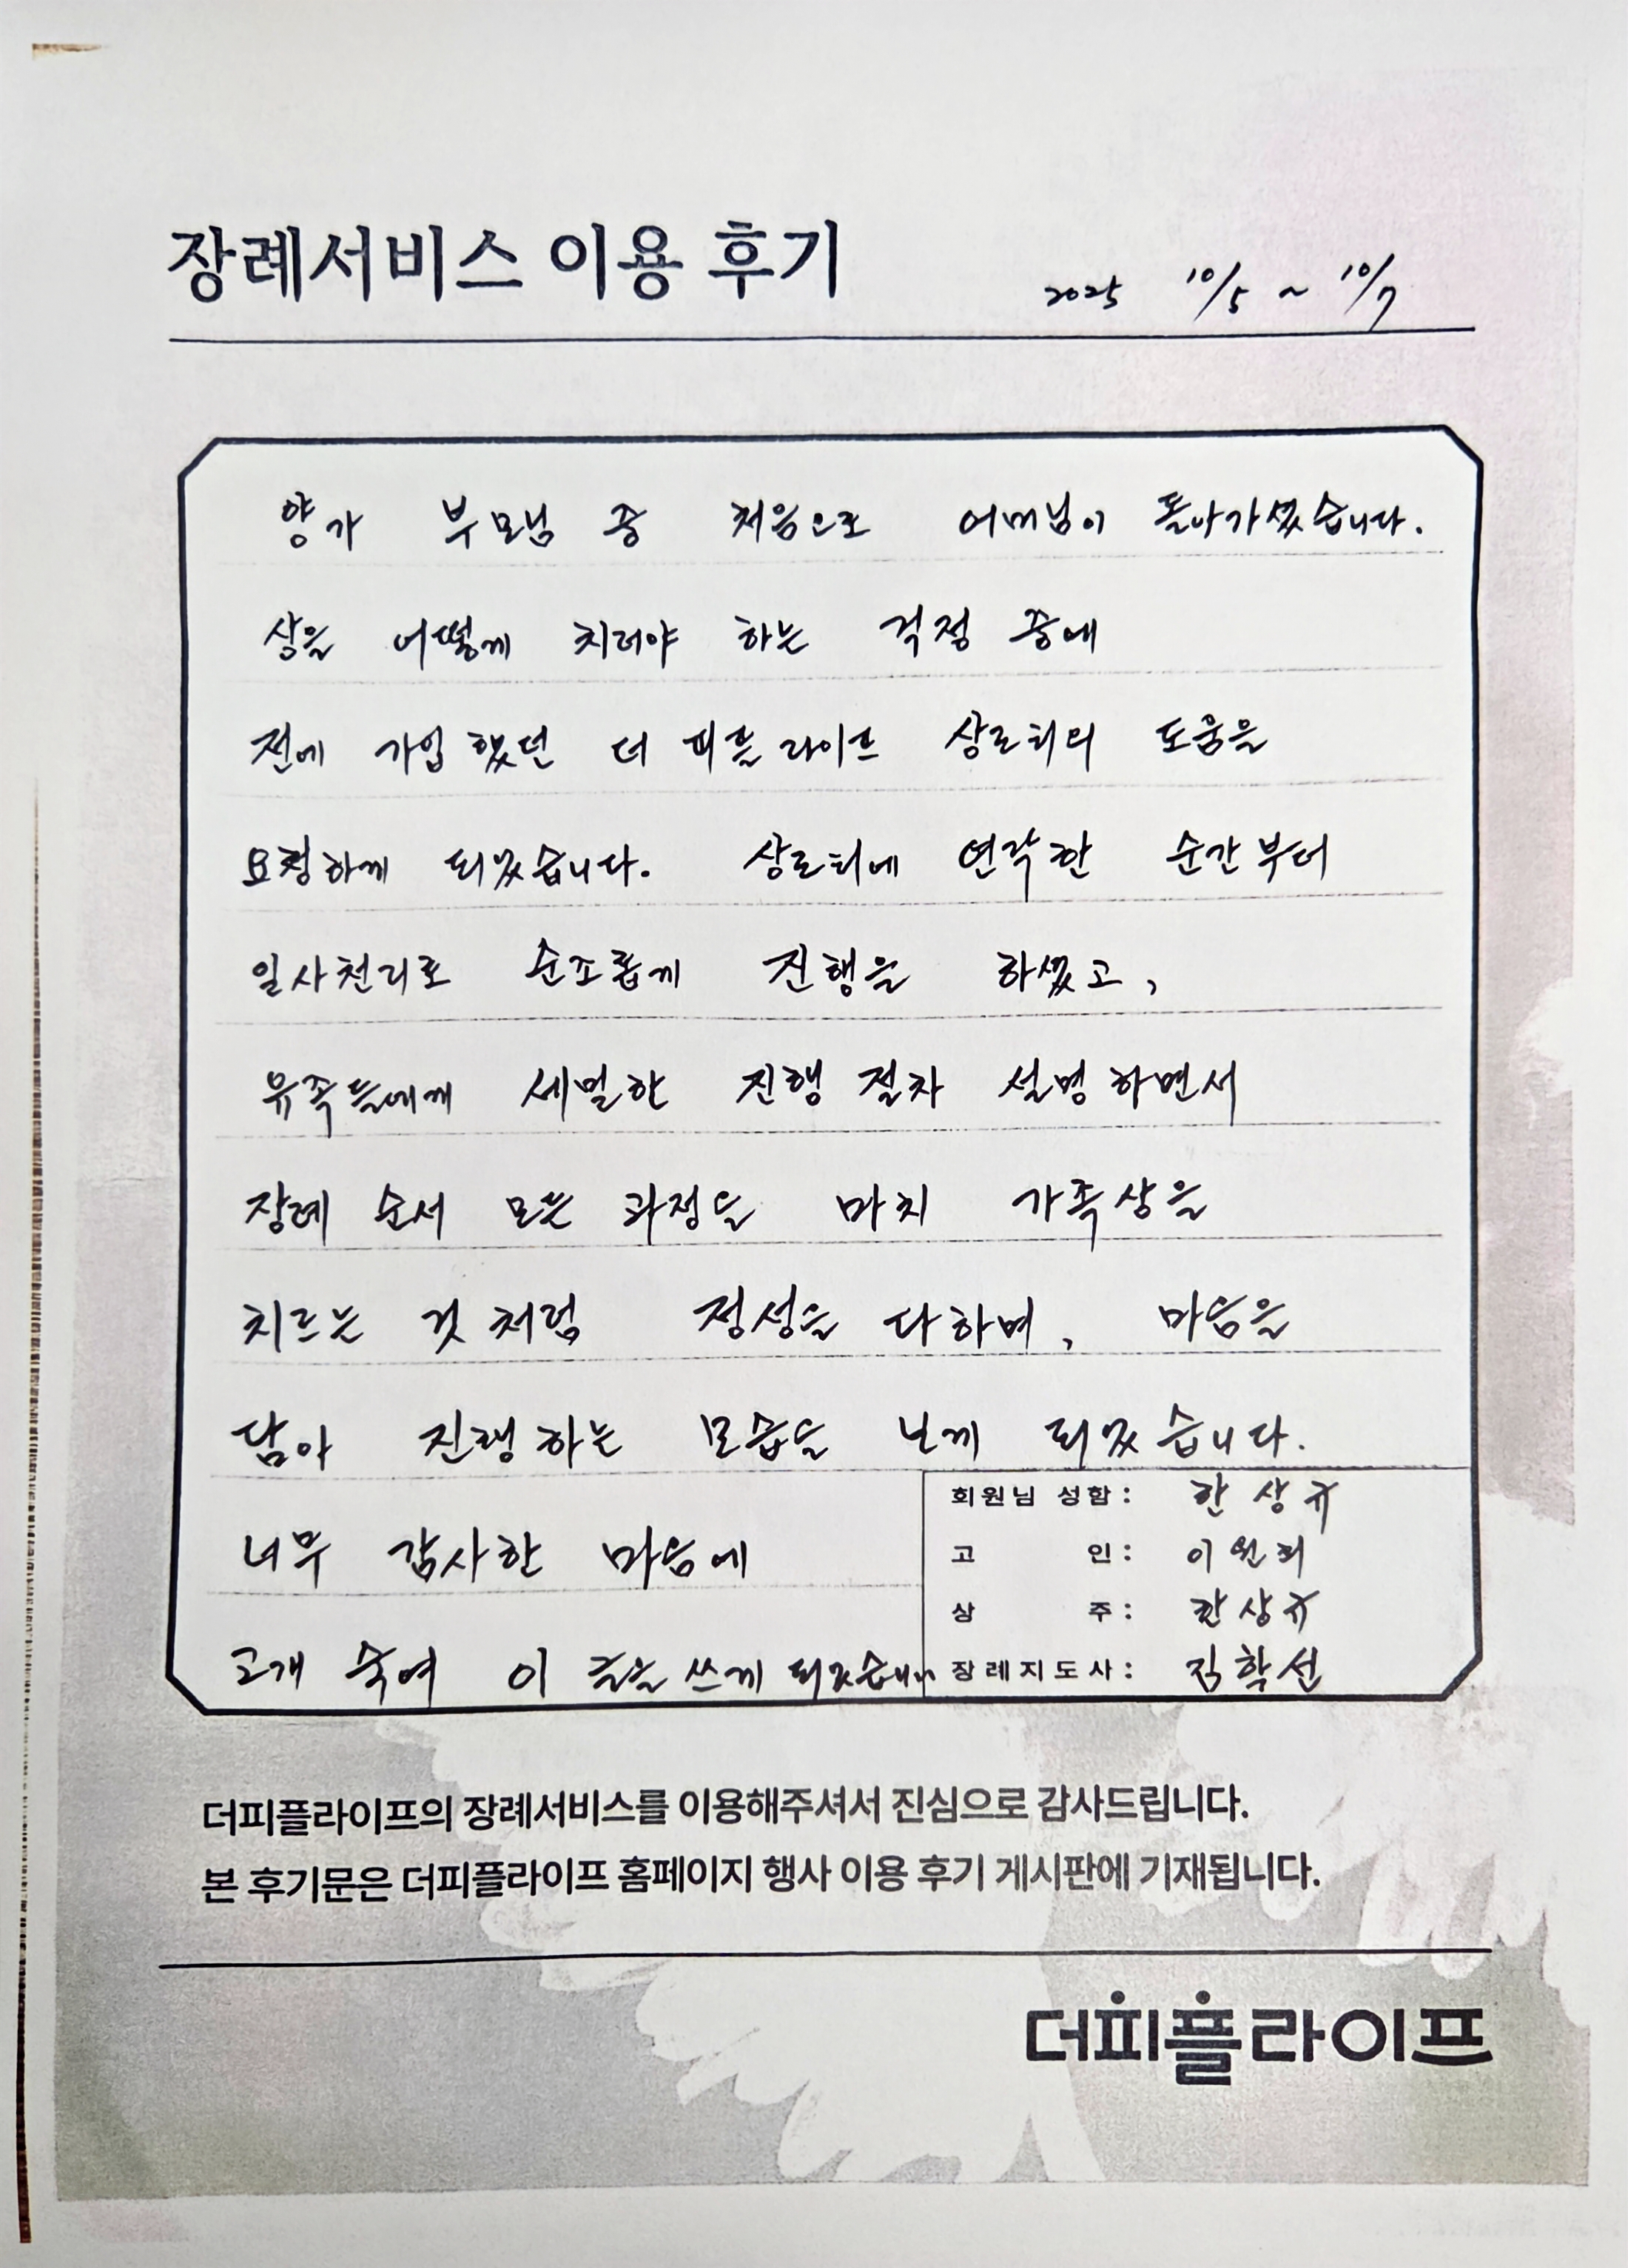 장례서비스 이용 후기 2025 10/5 ~ 10/7
양가 부모님 중 처음으로 어머님이 돌아가셨습니다.
상을 어떻게 치러야 하는 걱정 중에
전에 가입했던 더 피플 라이프 상조회의 도움을
요청하게 되었습니다. 상조회에 연락한 순간부터
일사천리로 순조롭게 진행을 하셨고,
유족들에게 세밀한 진행 절차 설명하면서
장례 순서 모든 과정을 마치 가족상을
치르는 것처럼 정성을 다하며, 마음을
담아 진행하는 모습을 보게 되었습니다.
너무 감사한 마음에
고개 숙여 이 글을 쓰게 되었습니다
회원님 성함: 한상규
고 인: 이원희
상 주: 한상규
장례지도사: 김학선
더피플라이프의 장례서비스를 이용해주셔서 진심으로 감사드립니다.
본 후기문은 더피플라이프 홈페이지 행사 이용 후기 게시판에 기재됩니다.
더피플라이프